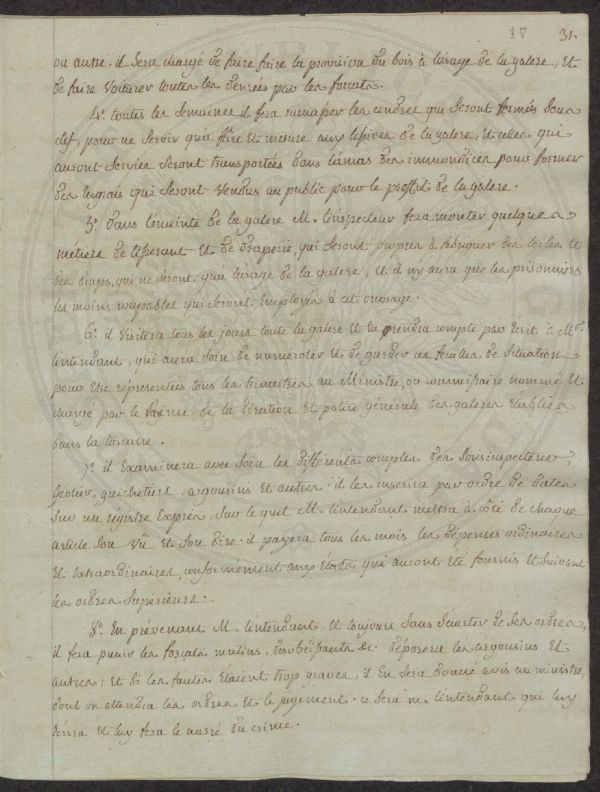 17 31.
ou autre. il sera chargé de faire faire la provision du bois à l'usage de la galere, Et
de faire Voiturer toutes les denrées par les forcats.
4.° toutes les Semaines il fera ramasser les cendres qui Seront fermées Sous
clef, pour ne Servir qu'a et mesure aux lessives de la galere, et celles qui
auront Servies Seront transportées dans l'amas des immondices pour former
des Engrais qui Seront Vendus au public pour le proffit de la galere.
5.° dans l'enceinte de la galere M. l'inspecteur fera monter quelques
métiers de tisserant Et de draperie, qui Seront propres à fabriquer des toiles Et
des draps, qui ne Seront qu'a l'usage de la galere, Et il n'y aura que les prisonniers
les moins coupables qui Seront Employés à cet ouvrage.
6.° il Visitera tous les jours toute la galere Et en rendra compte par Ecrit à Mr.
l'intendant, qui aura soin de numeroter Et de garder ces feuilles de Situation
pour être répresentées tous les trimestres au Ministre, ou commissaire nommé Et
chargé par le Régime de la direction Et police générale des galeres Etablies
dans la toscane.
7.° il Examinera avec Soin les différents comptes des Sousinspecteurs,
geolier, guichetiers, argousins Et autres. il les inscrira par ordre de dates
Sur un régistre Exprès, Sur le quel M. l'intendant mettra à côté de chaque
article Son Vû Et Son dire. il payera tous les mois les dépenses ordinaires
Et Extraordinaires, conformement aux états qui auront été fournis Et Suivant
les ordres Superieurs.
8.° En prévenant M. l'intendant, Et toujours Sans s'écarter de Ses ordres,
il fera punir les forcats mutins, desobéissants &c. déposera les argousins Et
autres; Et Si les fautes Etaient trop graves, il En Sera donné avis au ministre,
dont on attendra les ordres Et le jugement. ce Sera M. l'intendant qui luy
Ecrira Et luy fera le narré du crime.